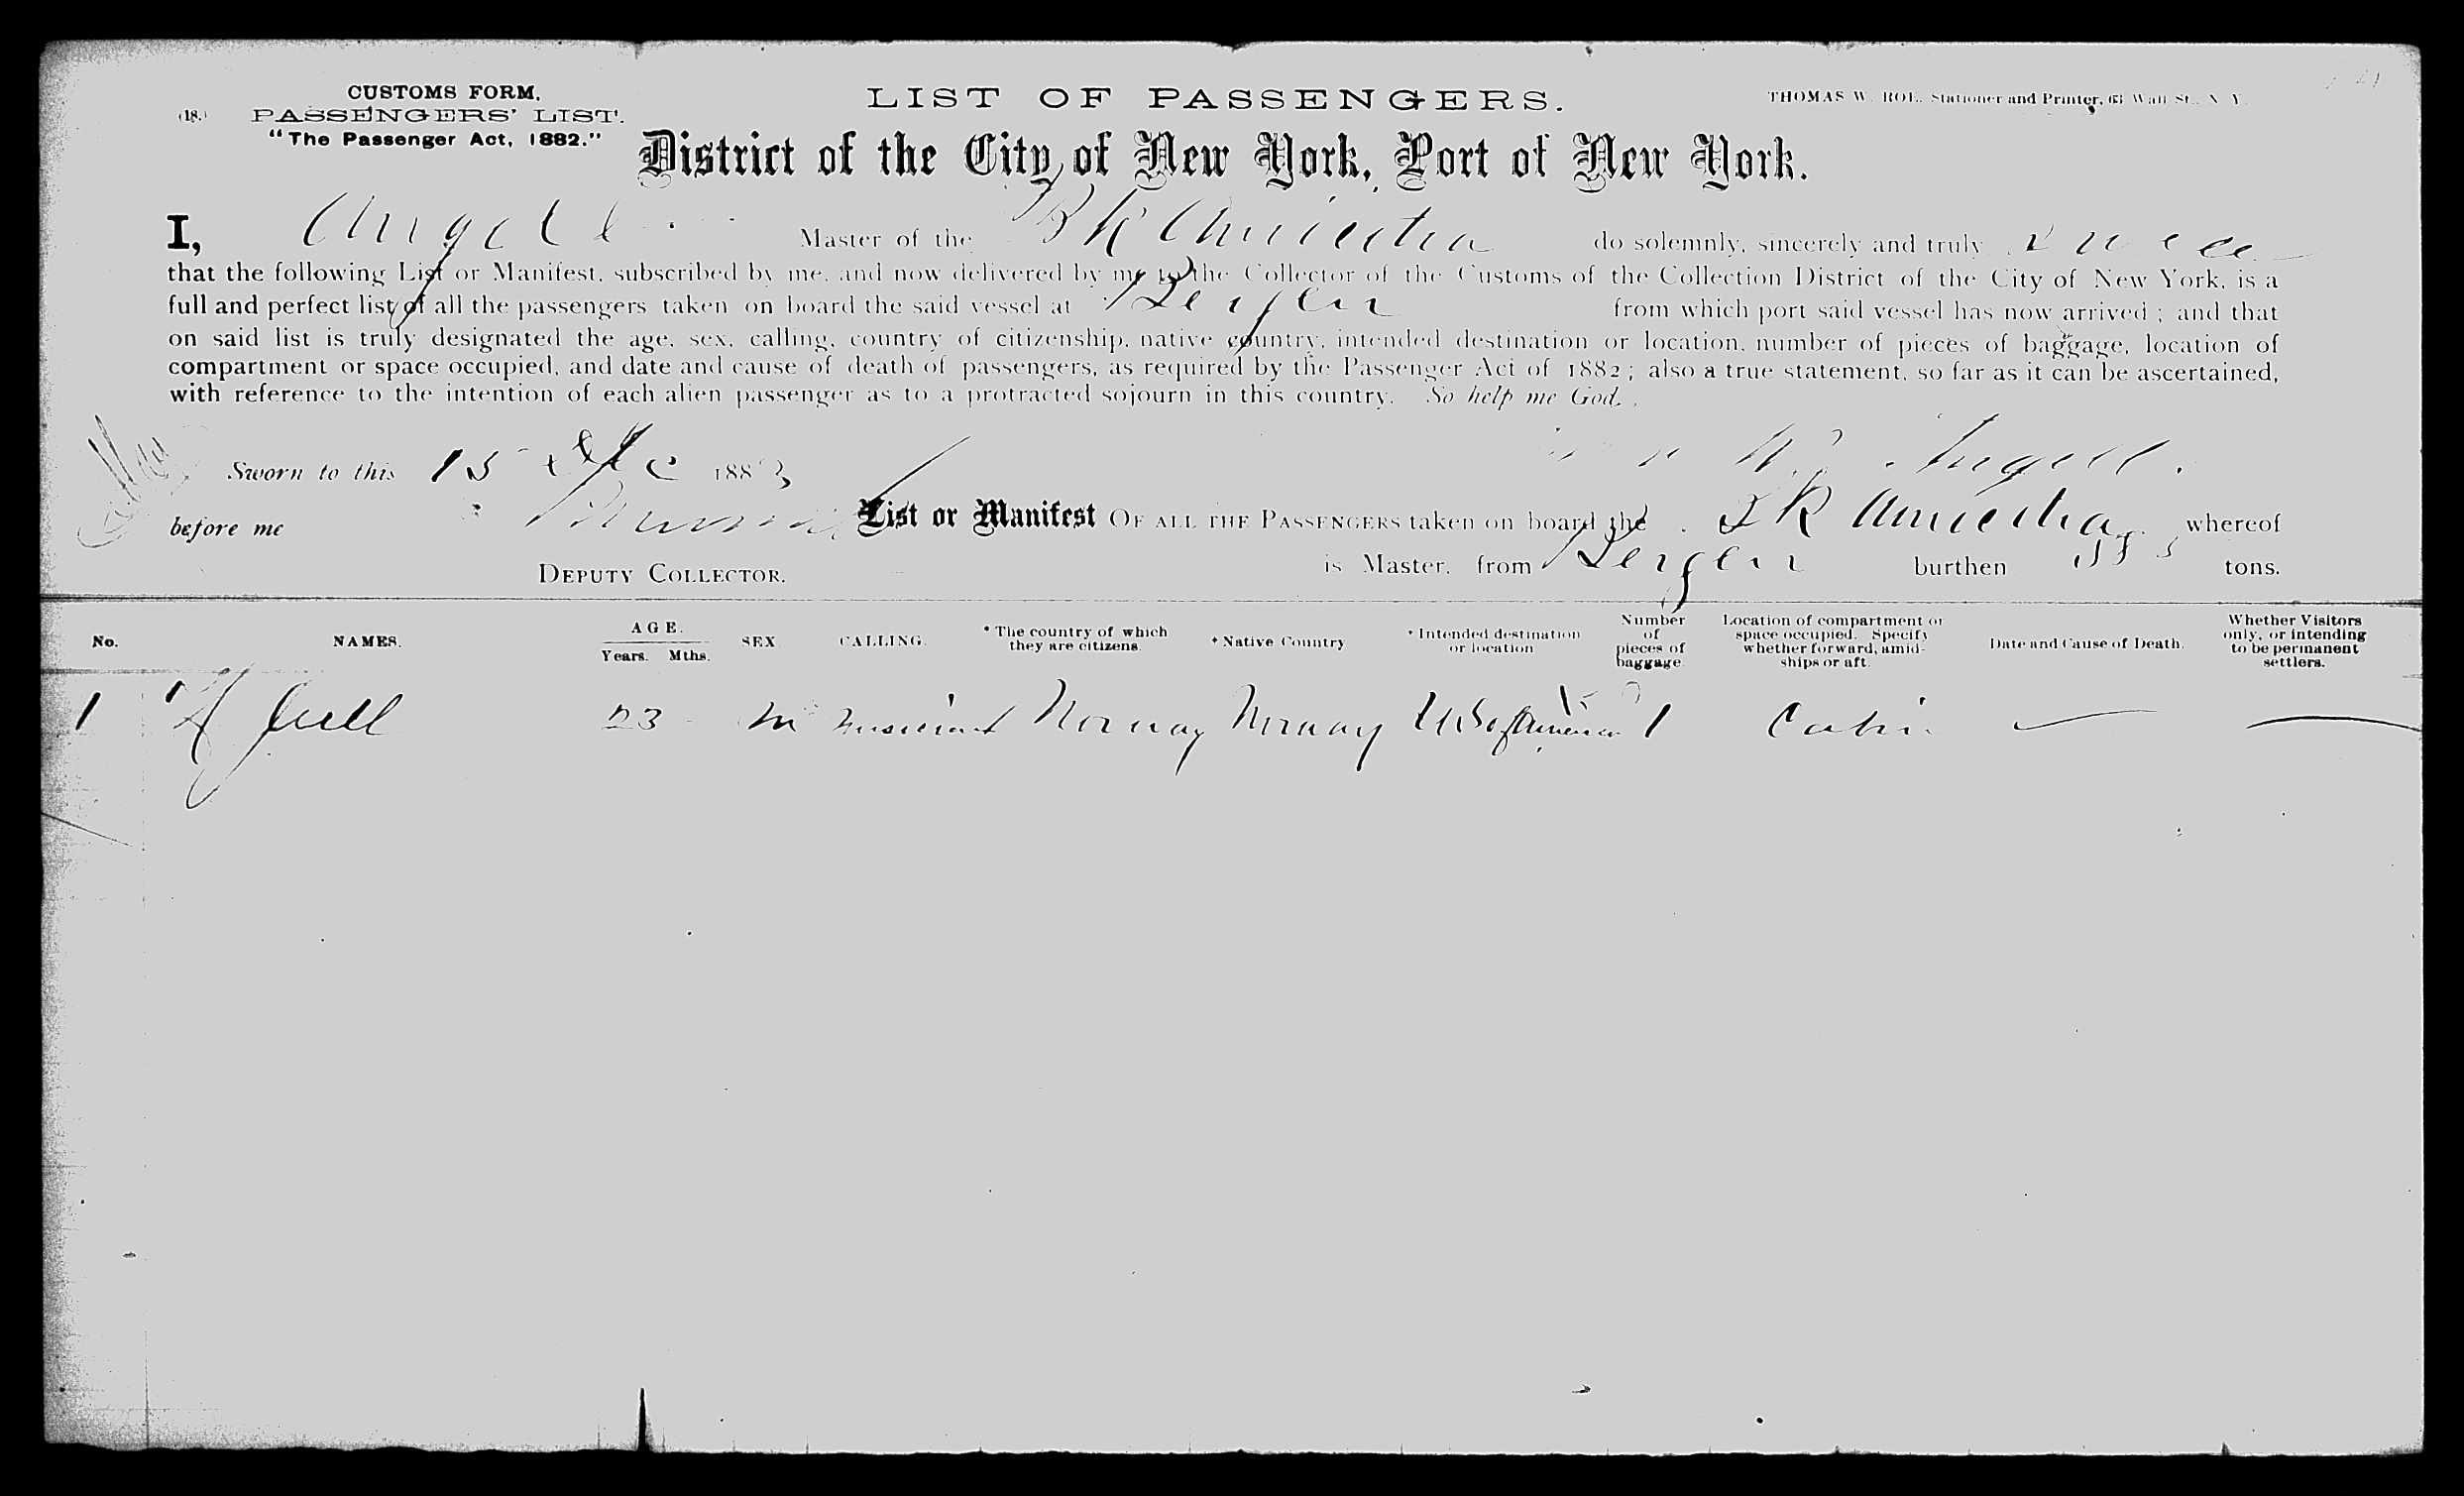 CUSTOMS FORM.
(18.) PASSENGERS' LIST.
"The Passenger Act, 1882."
LIST OF PASSENGERS.
THOMAS W. ROE, Stationer and Printer, 63 Wall St., N. Y.
District of the City of New York, Port of New York.
I, Angell Master of the BK do solemnly, sincerely and truly
that the following List or Manifest, subscribed by me, and now delivered by me to the Collector of the Customs of the Collection District of the City of New York, is a
full and perfect list of all the passengers taken on board the said vessel at Bergen from which port said vessel has now arrived ; and that
on said list is truly designated the age, sex, calling, country of citizenship, native country, intended destination or location, number of pieces of baggage, location of
compartment or space occupied, and date and cause of death of passengers, as required by the Passenger Act of 1882 ; also a true statement, so far as it can be ascertained,
with reference to the intention of each alien passenger as to a protracted sojourn in this country. So help me God.
Angell.
Sworn to this 15 1883
before me
List or Manifest OF ALL THE PASSENGERS taken on board the BK whereof
DEPUTY COLLECTOR.
is Master, from Bergen burthen tons.
No. NAMES. AGE. Years. Mths. SEX CALLING. * The country of which they are citizens. * Native Country * Intended destination or location Number of pieces of baggage. Location of compartment or space occupied. Specify whether forward, amidships or aft. Date and Cause of Death. Whether Visitors only, or intending to be permanent settlers.
1 Juell 23 m Norway Norway US of America 1 Cabin